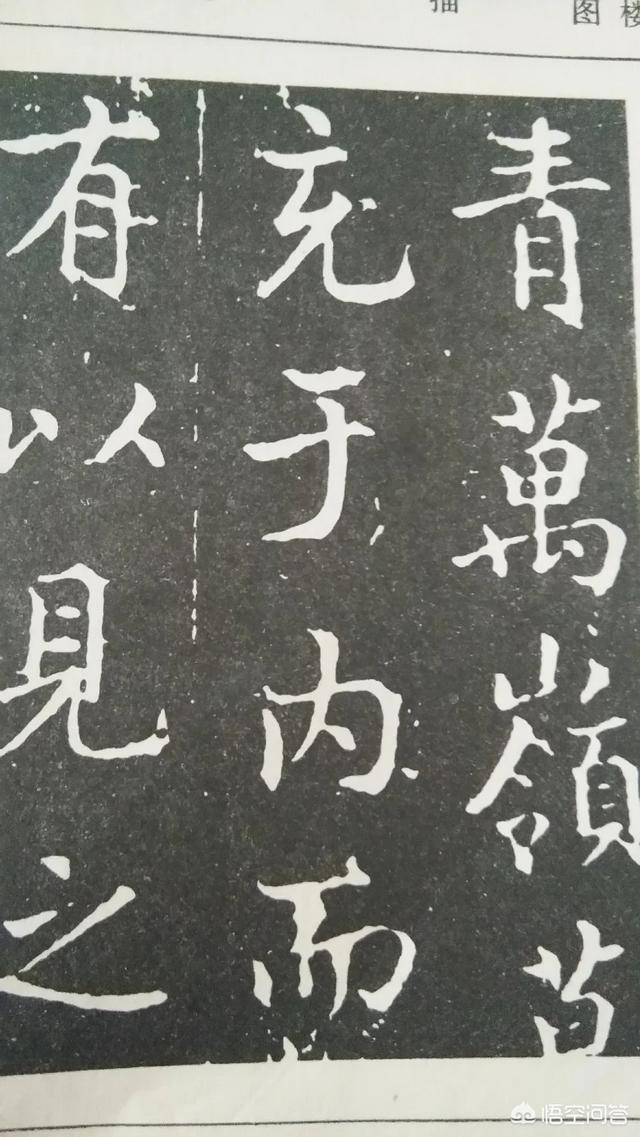 图
青萬嶺
充于内而
有以見之
悟空问答